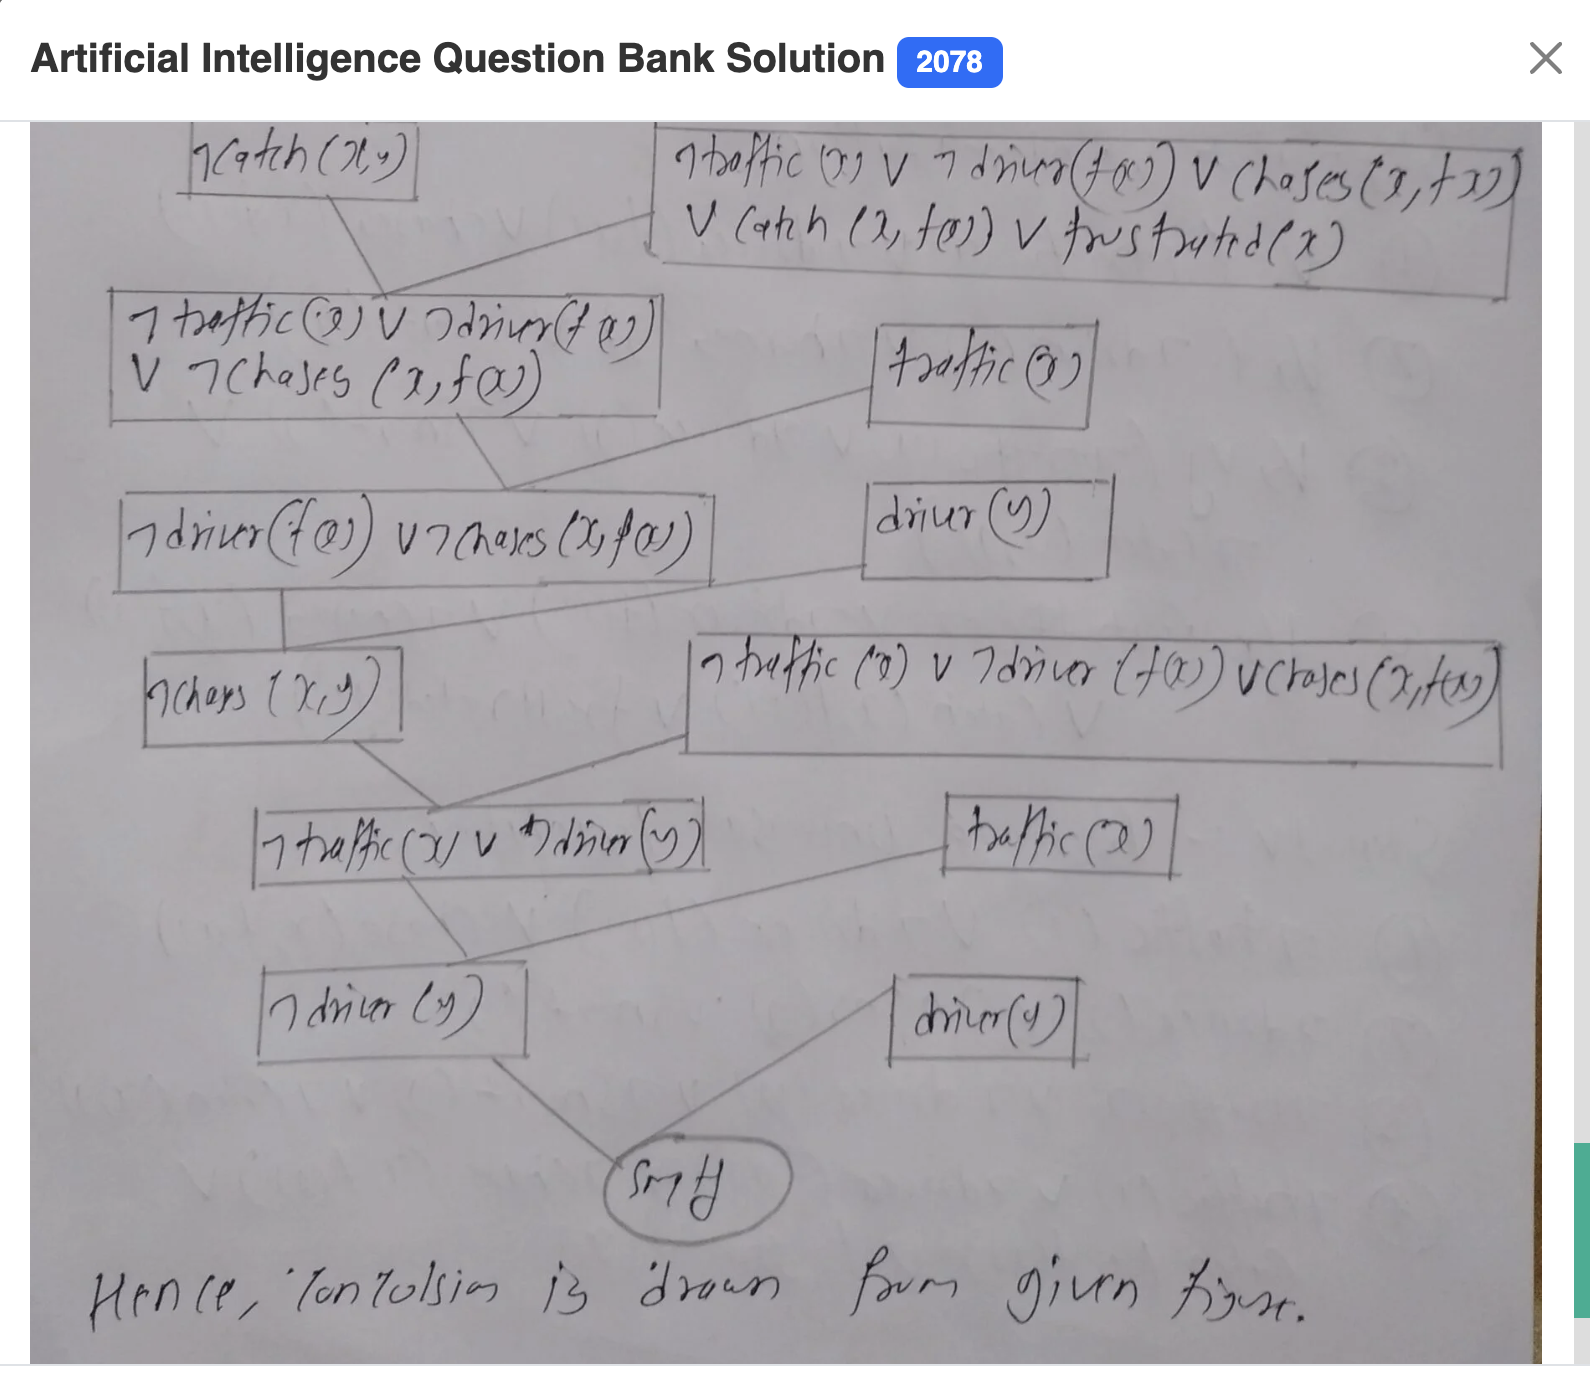 Artificial Intelligence Question Bank Solution 2078
¬Catch (x,y)
¬traffic (x) ∨ ¬driver(f(x)) ∨ Chases(x, f(x))
∨ Catch (x, f(x)) ∨ frustrated(x)
¬traffic(x) ∨ ¬driver(f(x))
∨ ¬Chases (x, f(x))
traffic(x)
¬driver(f(x)) ∨ ¬chases (x, f(x))
driver(y)
¬Chays (x,y)
¬traffic (x) ∨ ¬driver (f(x)) ∨ Chases(x, f(x))
¬traffic(x) ∨ ¬driver(y)
traffic(x)
¬driver (y)
driver(y)
Hence, is drawn from given figure.